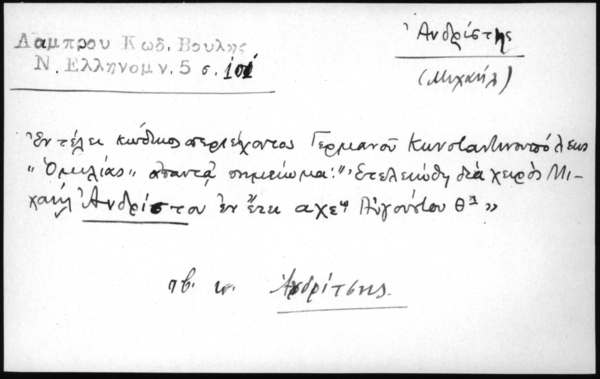 Λάμπρου Κωδ. Βουλης
Ν. Ελληνομν. 5 σ. 101
Ἀνδρίστης
(Μιχαήλ)
Ἐν τέλει κώδικος περιέχοντος Γερμανοῦ Κωνσταντινουπόλεως
"Ὁμιλίας" ἀπαντᾷ σημείωμα: "Ἐτελειώθη διὰ χειρὸς Μι-
χαὴλ Ἀνδρίστου ἐν ἔτει αχεῳ Αὐγούστου θῃ"
πβ. κ. Ἀνδρίτσης.